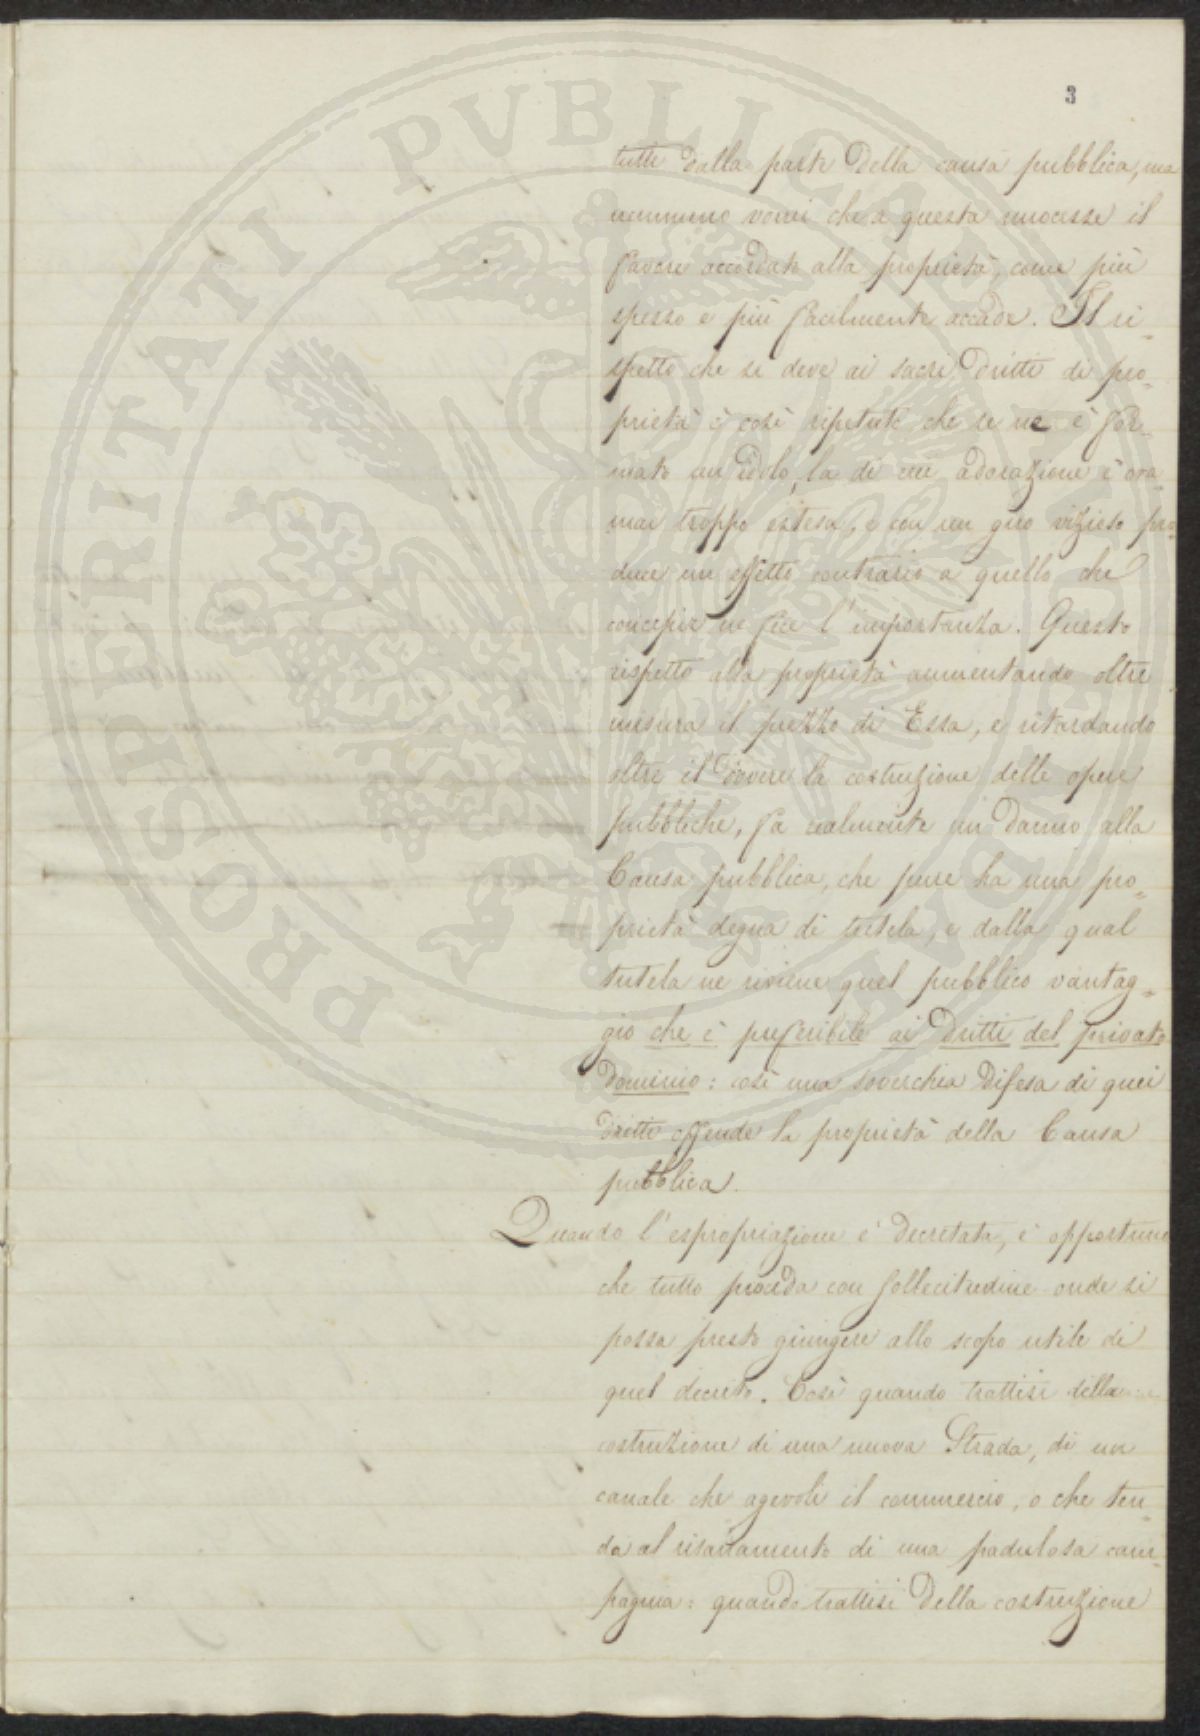 3
tutti dalla parte della causa pubblica, ma
nemmeno vorrei che a questa nuocesse il
favore accordato alla proprietà, come più
spesso e più facilmente accade. Il ri-
spetto che si deve ai sacri dritti di pro-
prietà è così ripetuto che se ne è for-
mato un idolo, la di cui adorazione è ora
mai troppo estesa, e con un giro vizioso pro
duce un effetto contrario a quello che
concepir ne fece l'importanza. Questo
rispetto alla proprietà aumentando oltre
misura il prezzo di Essa, e ritardando
oltre il dovere la costruzione delle opere
pubbliche, fa realmente un danno alla
Causa pubblica, che pure ha una pro-
prietà degna di tutela, e dalla qual
tutela ne riviene quel pubblico vantag-
gio che è preferibile ai dritti del privato
dominio: così una soverchia difesa di quei
dritti offende la proprietà della Causa
pubblica.
Quando l'espropriazione è decretata, è opportuno
che tutto proceda con sollecitudine onde si
possa presto giungere allo scopo utile di
quel decreto. Così quando trattisi della
costruzione di una nuova Strada, di un
canale che agevoli il commercio, o che ten-
da al risanamento di una padulosa cam-
pagna: quando trattisi della costruzione
PROSPERITATI PUBLICAE